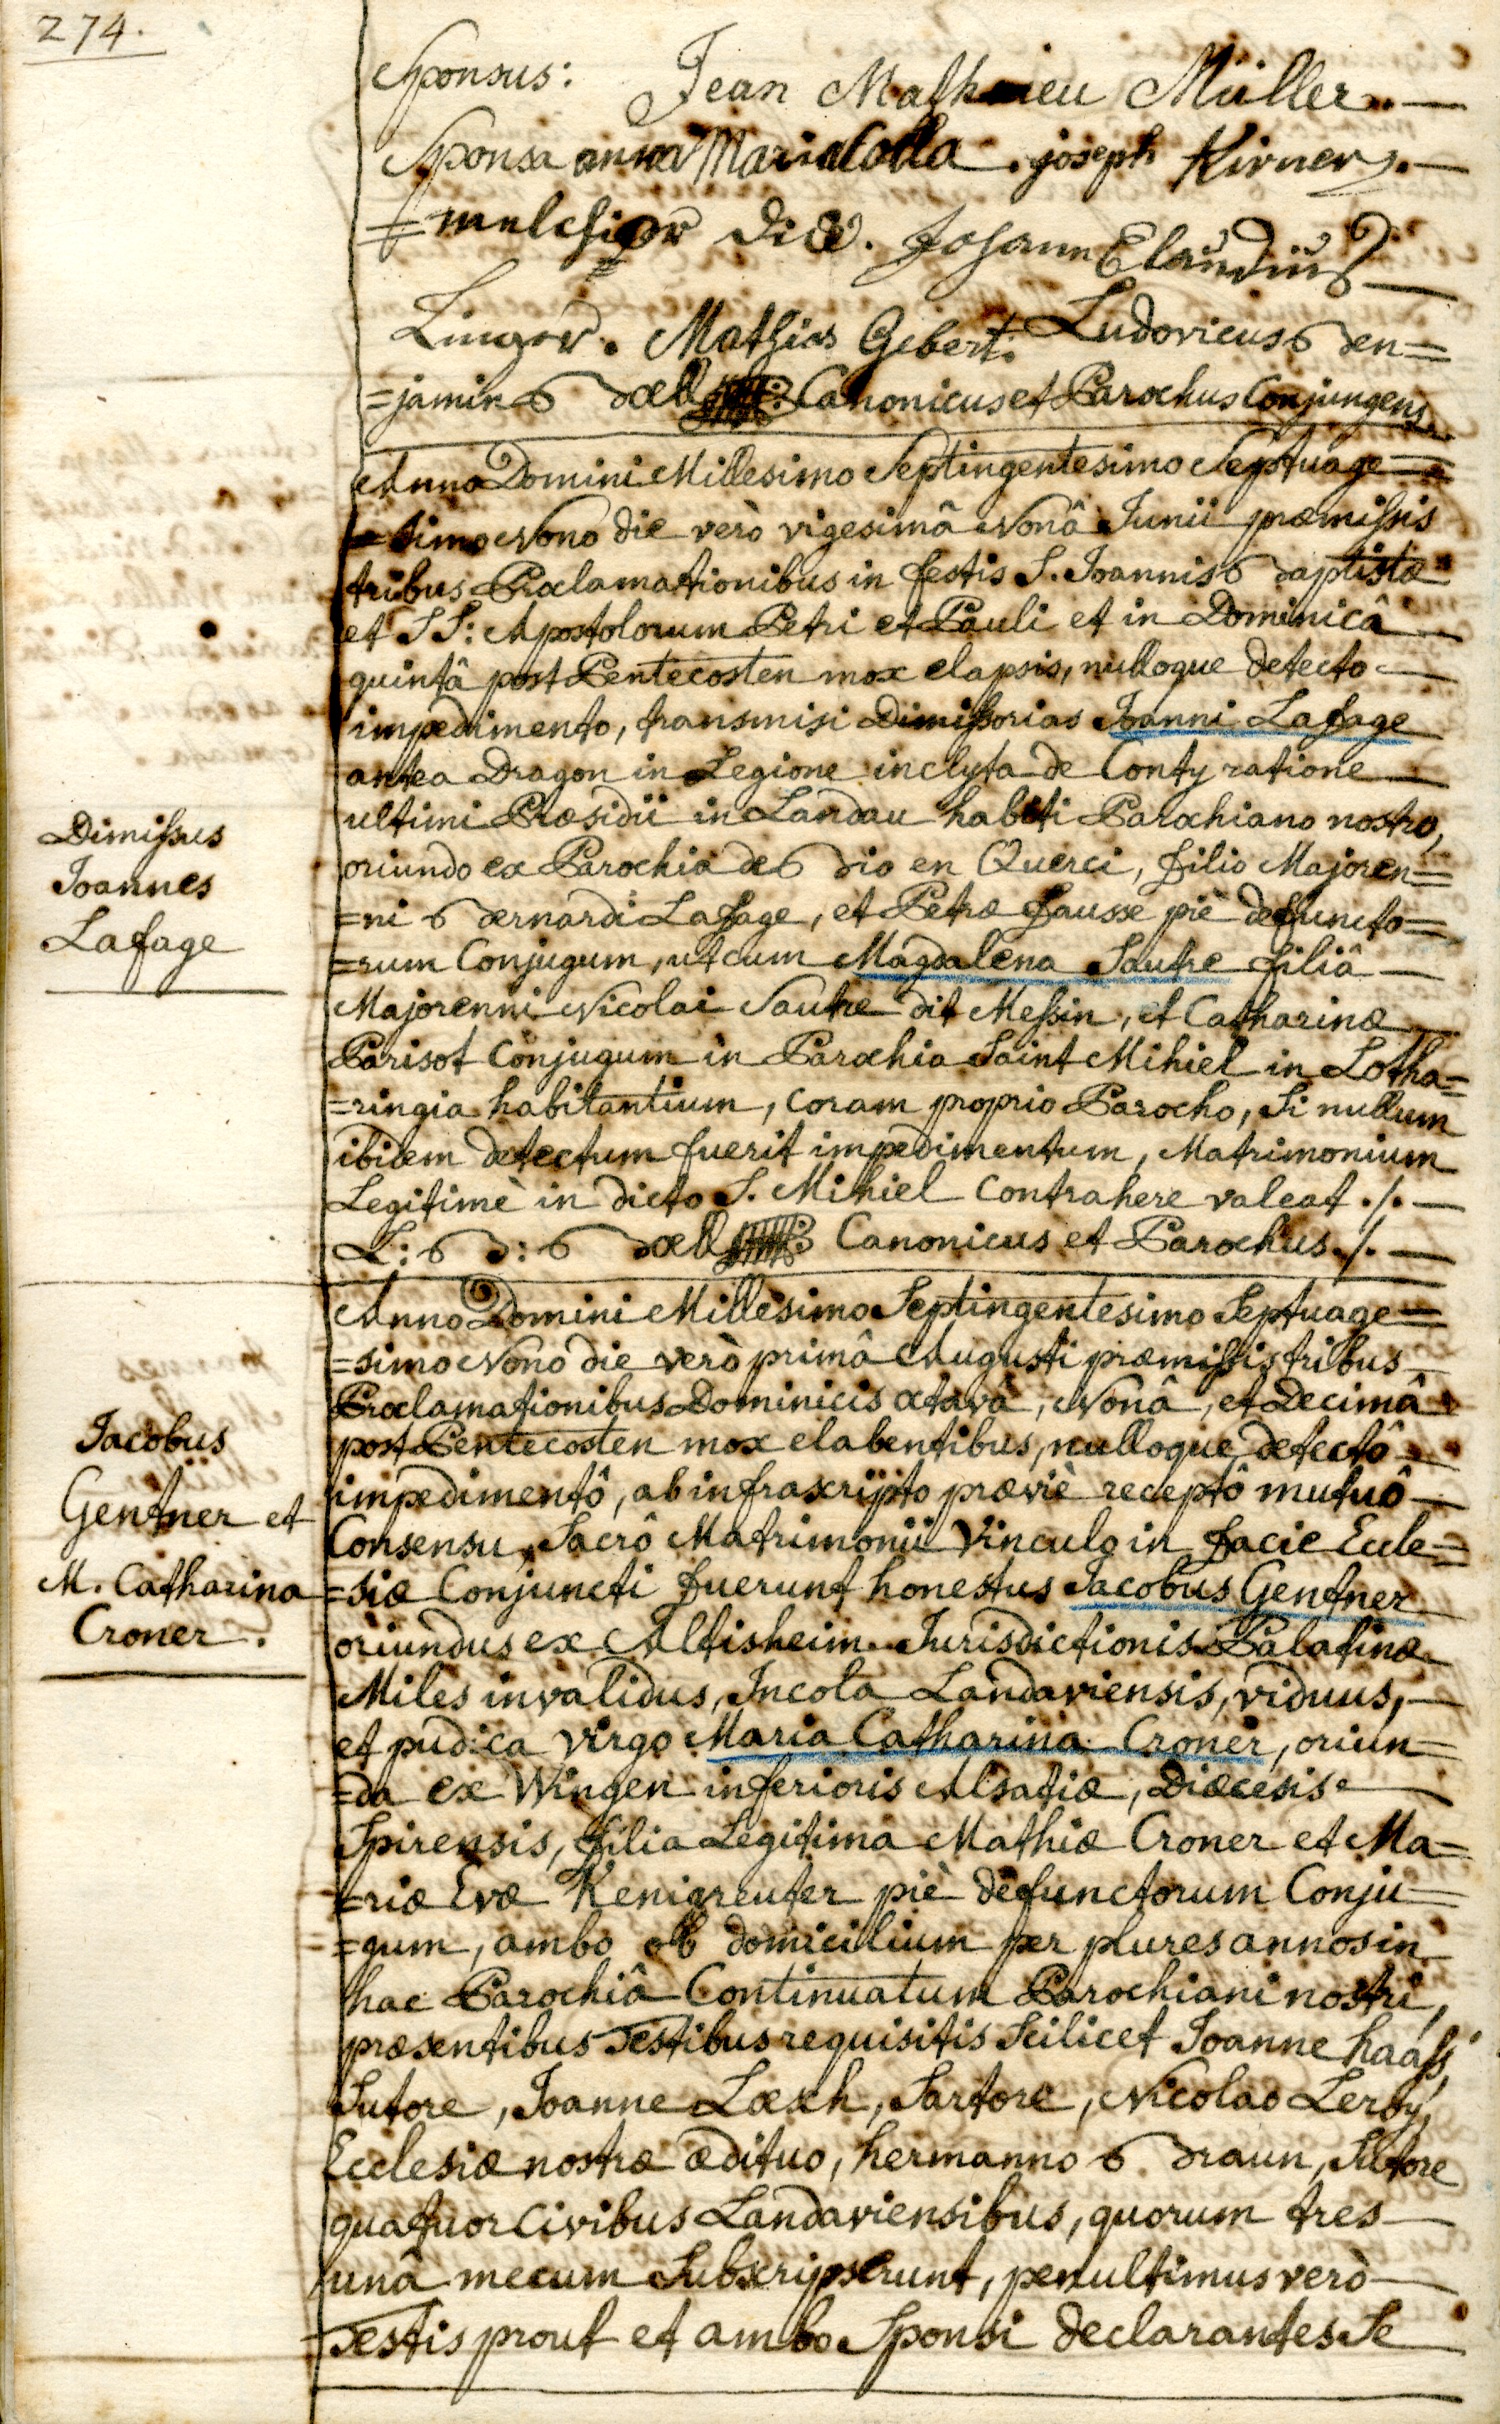 274.
Sponsus: Jean Mathieu Müller. —
Sponsa anna Maria Colla. joseph Kirner. —
= melchior Johann
Mathias Gebert. Ludovicus Ben=
=jamin Bœll Canonicus et Parochus Conjungens
Anno Domini Millesimo Septingentesimo Septuage=
=simo Nono die verò vigesimâ Nonâ Junii præmissis
tribus Proclamationibus in festis S. Joannis Baptistæ
et SS: Apostolorum Petri et Pauli et in Dominicâ
quintâ post Pentecosten mox elapsis, nulloque detecto —
impedimento, transmisi Dimissorias Joanni Lafage
antea Dragon in Legione inclyta de Conty ratione —
ultimi Præsidii in Landau habiti Parochiano nostro,
oriundo ex Parochia de Bio en Querci, filio Majoren=
=ni Bernardi Lafage, et Petræ fausse piè defuncto=
=rum Conjugum, ut cum Magdalena Sautre filiâ —
Majorenni Nicolai Sautre dit Messin, et Catharinæ
Parisot Conjugum in Parochia Saint Mihiel in Lotha=
=ringia habitantium, coram proprio Parocho, Si nullum
ibidem detectum fuerit impedimentum, Matrimonium
Legitimè in dicto S. Mihiel Contrahere valeat ./. —
L: B: Bœll Canonicus et Parochus ./. —
Dimissus
Joannes
Lafage
Anno Domini Millesimo Septingentesimo Septuage=
=simo Nono die verò primâ Augusti præmissis tribus —
Proclamationibus Dominicis octavâ, Nonâ, et Decimâ
post Pentecosten mox elabentibus, nulloque detectô —
impedimentô, ab infrascripto præviè receptô mutuô —
Consensu, Sacrô Matrimonii Vinculo in facie Eccle=
=siæ Conjuncti fuerunt honestus Jacobus Gentner
oriundus ex Altisheim Jurisdictionis Palatinæ
Miles invalidus, Incola Landaviensis, viduus, —
et pudica virgo Maria Catharina Croner, oriun=
=da ex Wingen inferioris Alsatiæ, Diœcesis —
Spirensis, filia Legitima Mathiæ Croner et Ma=
=riæ Evæ Kenigreuter piè defunctorum Conju=
=gum, ambo ob domicilium per plures annos in
hac Parochiâ Continuatum Parochiani nostri,
præsentibus Testibus requisitis Scilicet Joanne haass,
Sutore, Joanne Lœsch, Sartore, Nicolao Leroy,
Ecclesiæ nostræ ædituo, hermanno Braun, Sutore
quatuor Civibus Landaviensibus, quorum tres —
unâ mecum Subscripserunt, penultimus verò —
Testis prout et ambo Sponsi declarantes Se
Jacobus
Gentner et
M. Catharina
Croner.